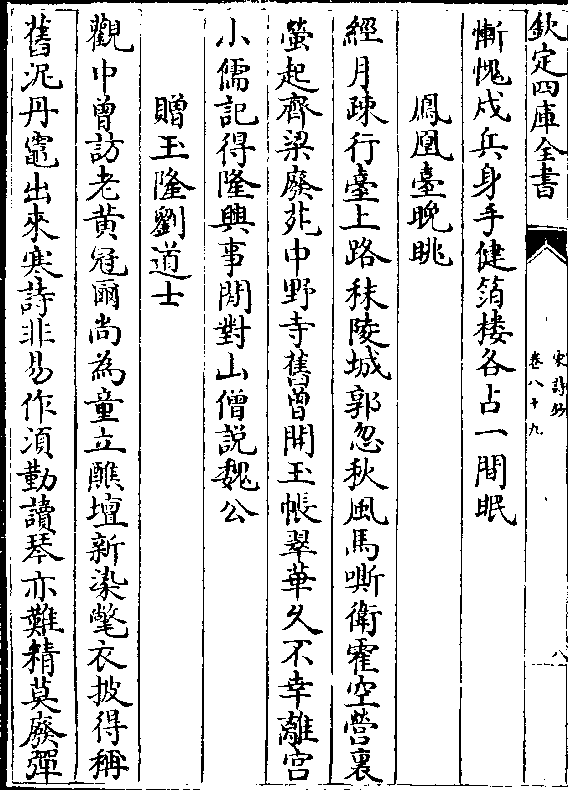 欽定四庫全書
宋詩鈔
卷八十九
八
慚愧戍兵身手健箔樓各占一間眠
鳳凰臺晚眺
經月疎行臺上路秣陵城郭忽秋風馬嘶衛霍空營裏
螢起齊梁廢苑中野寺舊曾開玉帳翠華久不幸離宮
小儒記得隆興事閒對山僧説魏公
贈玉隆劉道士
觀中曾訪老黃冠爾尚為童立醮壇新染氅衣披得稱
舊泥丹竈出來寒詩非易作湏勤讀琴亦難精莫廢彈